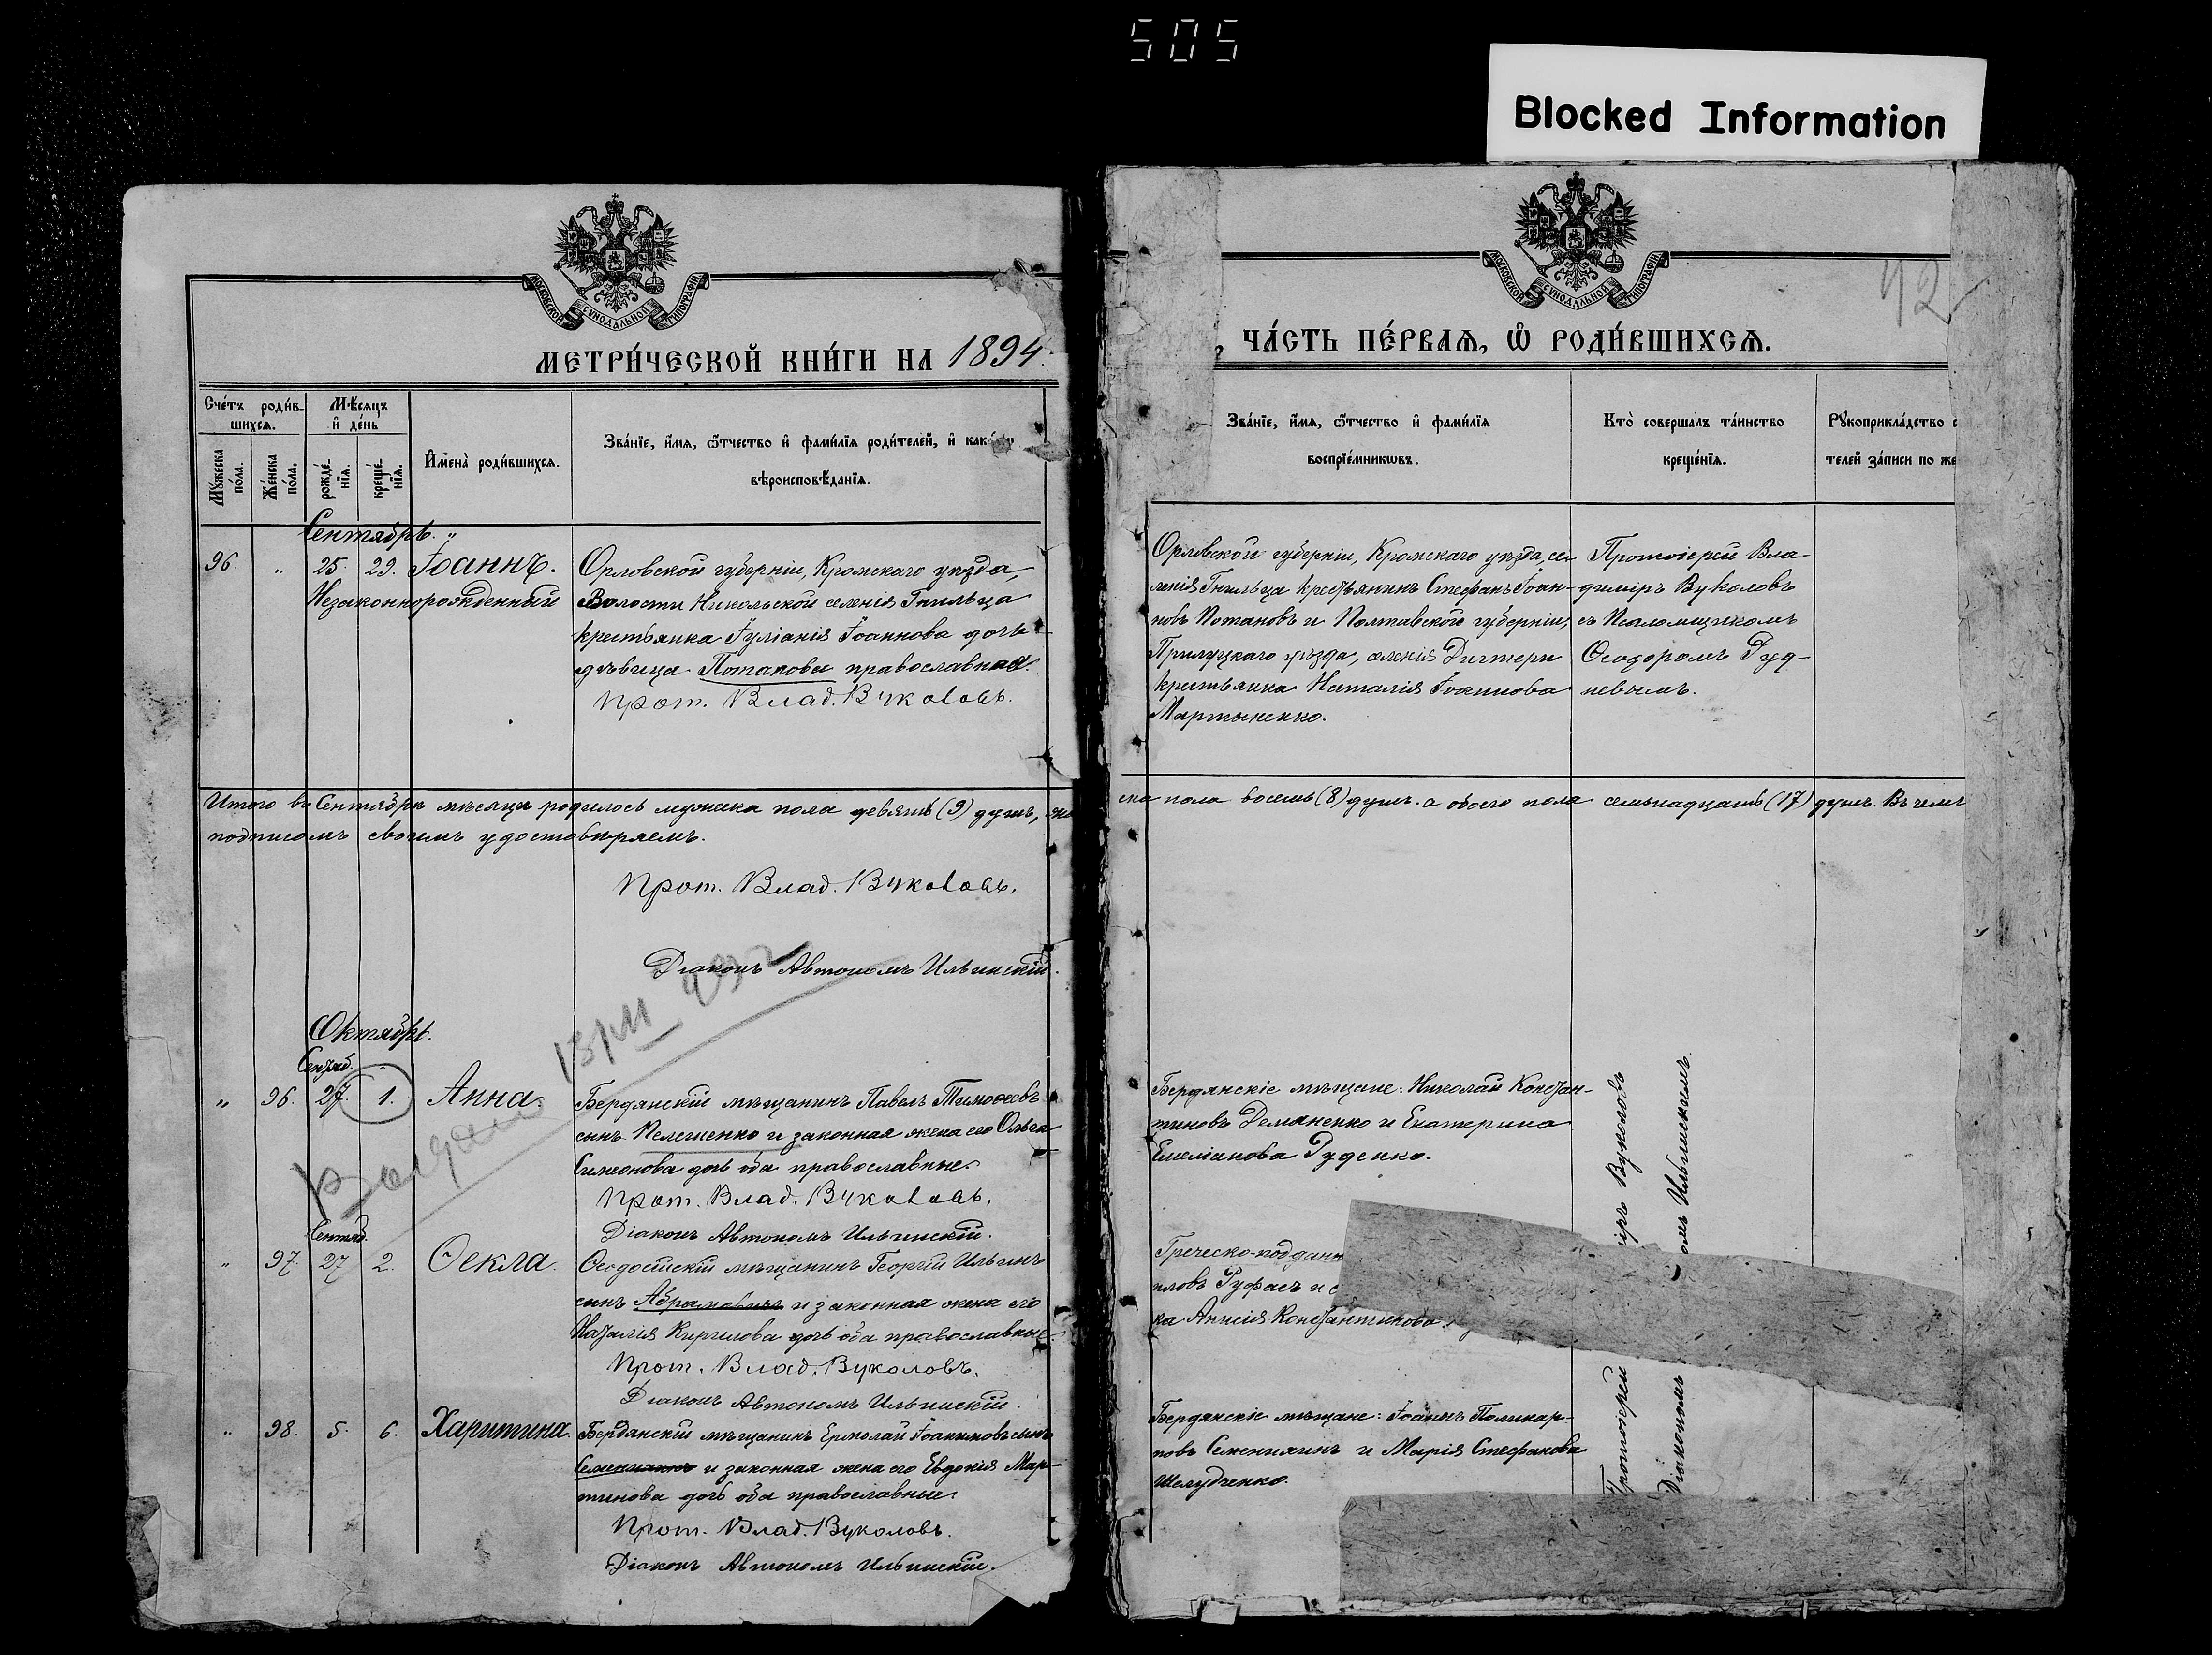 505
Blocked Information
МОСКОВСКОЙ СѴНОДАЛЬНОЙ ТИПОГРАФІИ
МЕТРИ́ЧЕСКОЙ КНИ́ГИ НА 1894.
Сче́тъ роди́вшихся.
Мѣ́сяцъ и҆ де́нь
Мꙋ́жеска по́ла.
Же́нска по́ла.
рожде́нїя.
креще́нїя.
И҆мена̀ роди́вшихся.
Зва́нїе, и҆́мя, ѻ҆́тчество и҆ фами́лїя роди́телей, и҆
вѣроисповѣ́данїя.
Сентябрь.
96. " 25. 29. Іоаннъ.
Незаконнорожденный
Орловской губерніи, Кромскаго уѣзда,
Волости Никольской селенія Гнильца
крестьянка Іуліанія Іоаннова дочь
дѣвица Потапова православная.
Прот. Влад. Вуколовъ.
Итого въ Сентябрѣ мѣсяцѣ родилось мужска пола девять (9) душъ,
подписомъ своимъ удостовѣряемъ.
Прот. Влад. Вуколовъ.
Діаконъ Автономъ Ильинскій.
Октябрь.
Сентяб.
" 96. 27. 1. Анна.
Бердянскій мѣщанинъ Павелъ Тимоѳеевъ
сынъ Пелешенко и законная жена его Ольга
Симеонова дочь оба православные.
Прот. Влад. Вуколовъ.
Діаконъ Автономъ Ильинскій.
Сентяб.
" 97. 27 2. Ѳекла.
Ѳеодосійскій мѣщанинъ Георгій Ильинъ
сынъ Абрамовичъ и законная жена его
Наталія Кирилова дочь оба православные.
Прот. Влад. Вуколовъ.
Діаконъ Автономъ Ильинскій.
" 98. 5. 6. Харитина.
Бердянскій мѣщанинъ Ермолай Іоакимовъ сынъ
Семенихинъ и законная жена его Евдокія Мар-
тинова дочь оба православные.
Прот. Влад. Вуколовъ.
Діаконъ Автономъ Ильинскій.
МОСКОВСКОЙ СѴНОДАЛЬНОЙ ТИПОГРАФІИ
42
ЧА́СТЬ ПЕ́РВАЯ, Ѽ РОДИ́ВШИХСЯ.
Зва́нїе, и҆́мя, ѻ҆́тчество и҆ фами́лїя
воспрїе́мникѡвъ.
Кто̀ соверша́лъ та́инство
креще́нїя.
Рꙋкоприкла́дство с
телей за́писи по же
Орловской губерніи, Кромскаго уѣзда, се-
ленія Гнильца крестьянинъ Стефанъ Іоан-
новъ Потаповъ и Полтавской губерніи,
Прилуцкаго уѣзда, селенія Дигтери
крестьянка Наталія Іоакимова
Мартыненко.
Протоіерей Вла-
димиръ Вуколовъ
съ Псаломщикомъ
Ѳеодоромъ Руд-
невымъ.
ска пола восемь (8) душъ. а обоего пола семьнадцать (17) душъ. Въ чемъ
Бердянскіе мѣщане: Николай Констан-
тиновъ Демяненко и Екатерина
Емеліанова Руденко.
Греческо-поддан
иловъ Руфасъ и с
ка Анисія Константинова
Бердянскіе мѣщане: Іоаннъ Поликар-
повъ Семенихинъ и Марія Стефанова
Шелудченко.
Протоіерей іръ Вуколовъ
Діакономъ омъ Ильинскимъ.